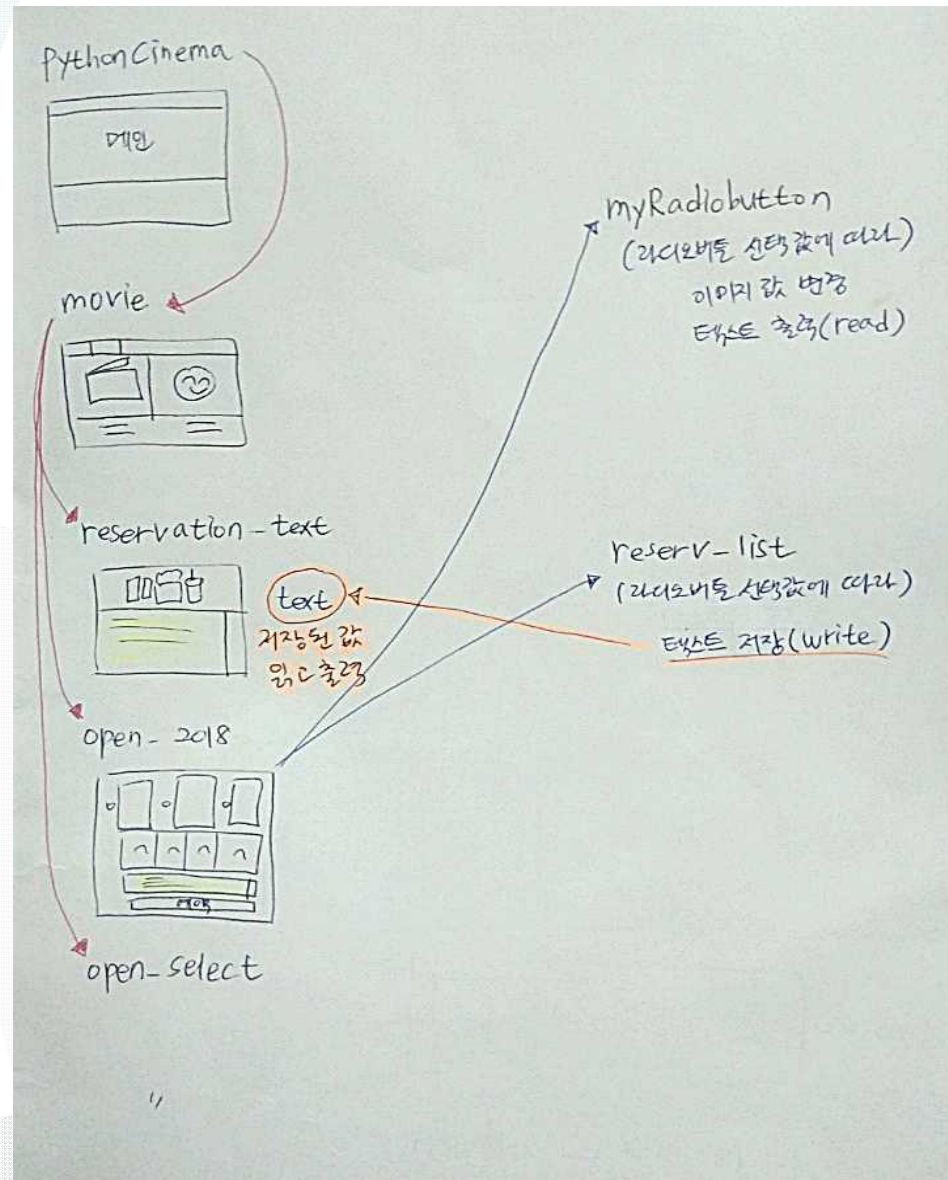 PythonCinema
메인
movie
reservation-text
text
저장된 값
읽고 출력
open-2018
예매
open-select
myRadiobutton
(라디오버튼 선택값에 따라)
이미지 값 변경
텍스트 출력(read)
reserv-list
(라디오버튼 선택값에 따라)
텍스트 저장(write)